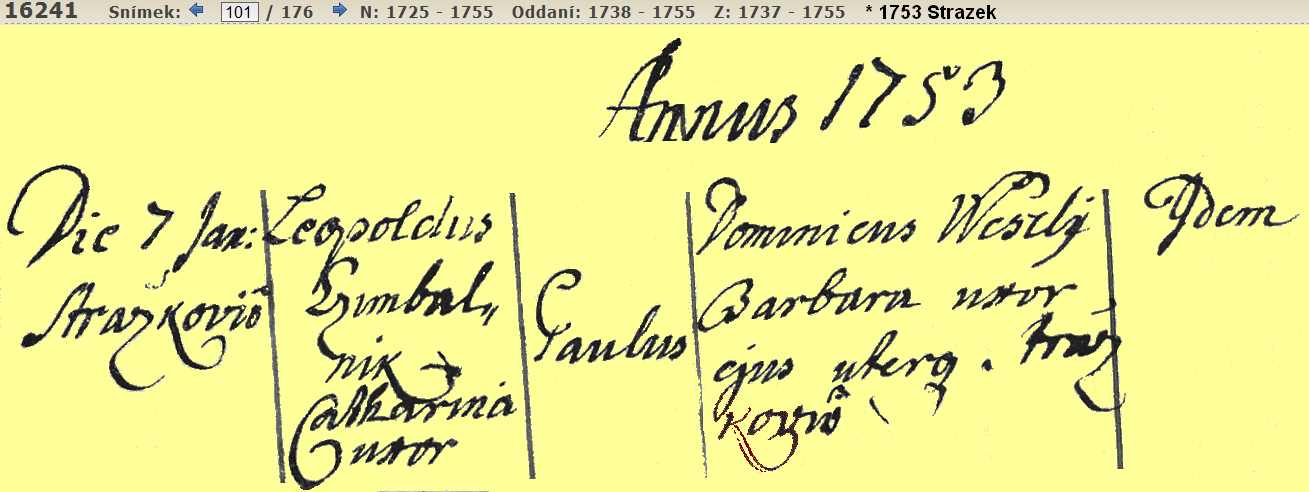 16241 Snímek: 101 / 176 N: 1725 - 1755 Oddaní: 1738 - 1755 Z: 1737 - 1755 * 1753 Strazek
Annus 1753
Die 7 Jan:
Stražkovij
Leopoldus
Czimbal„
nik
Catharina
uxor
Paulus
Dominicus Weselý
Barbara uxor
ejus uterq.
Idem